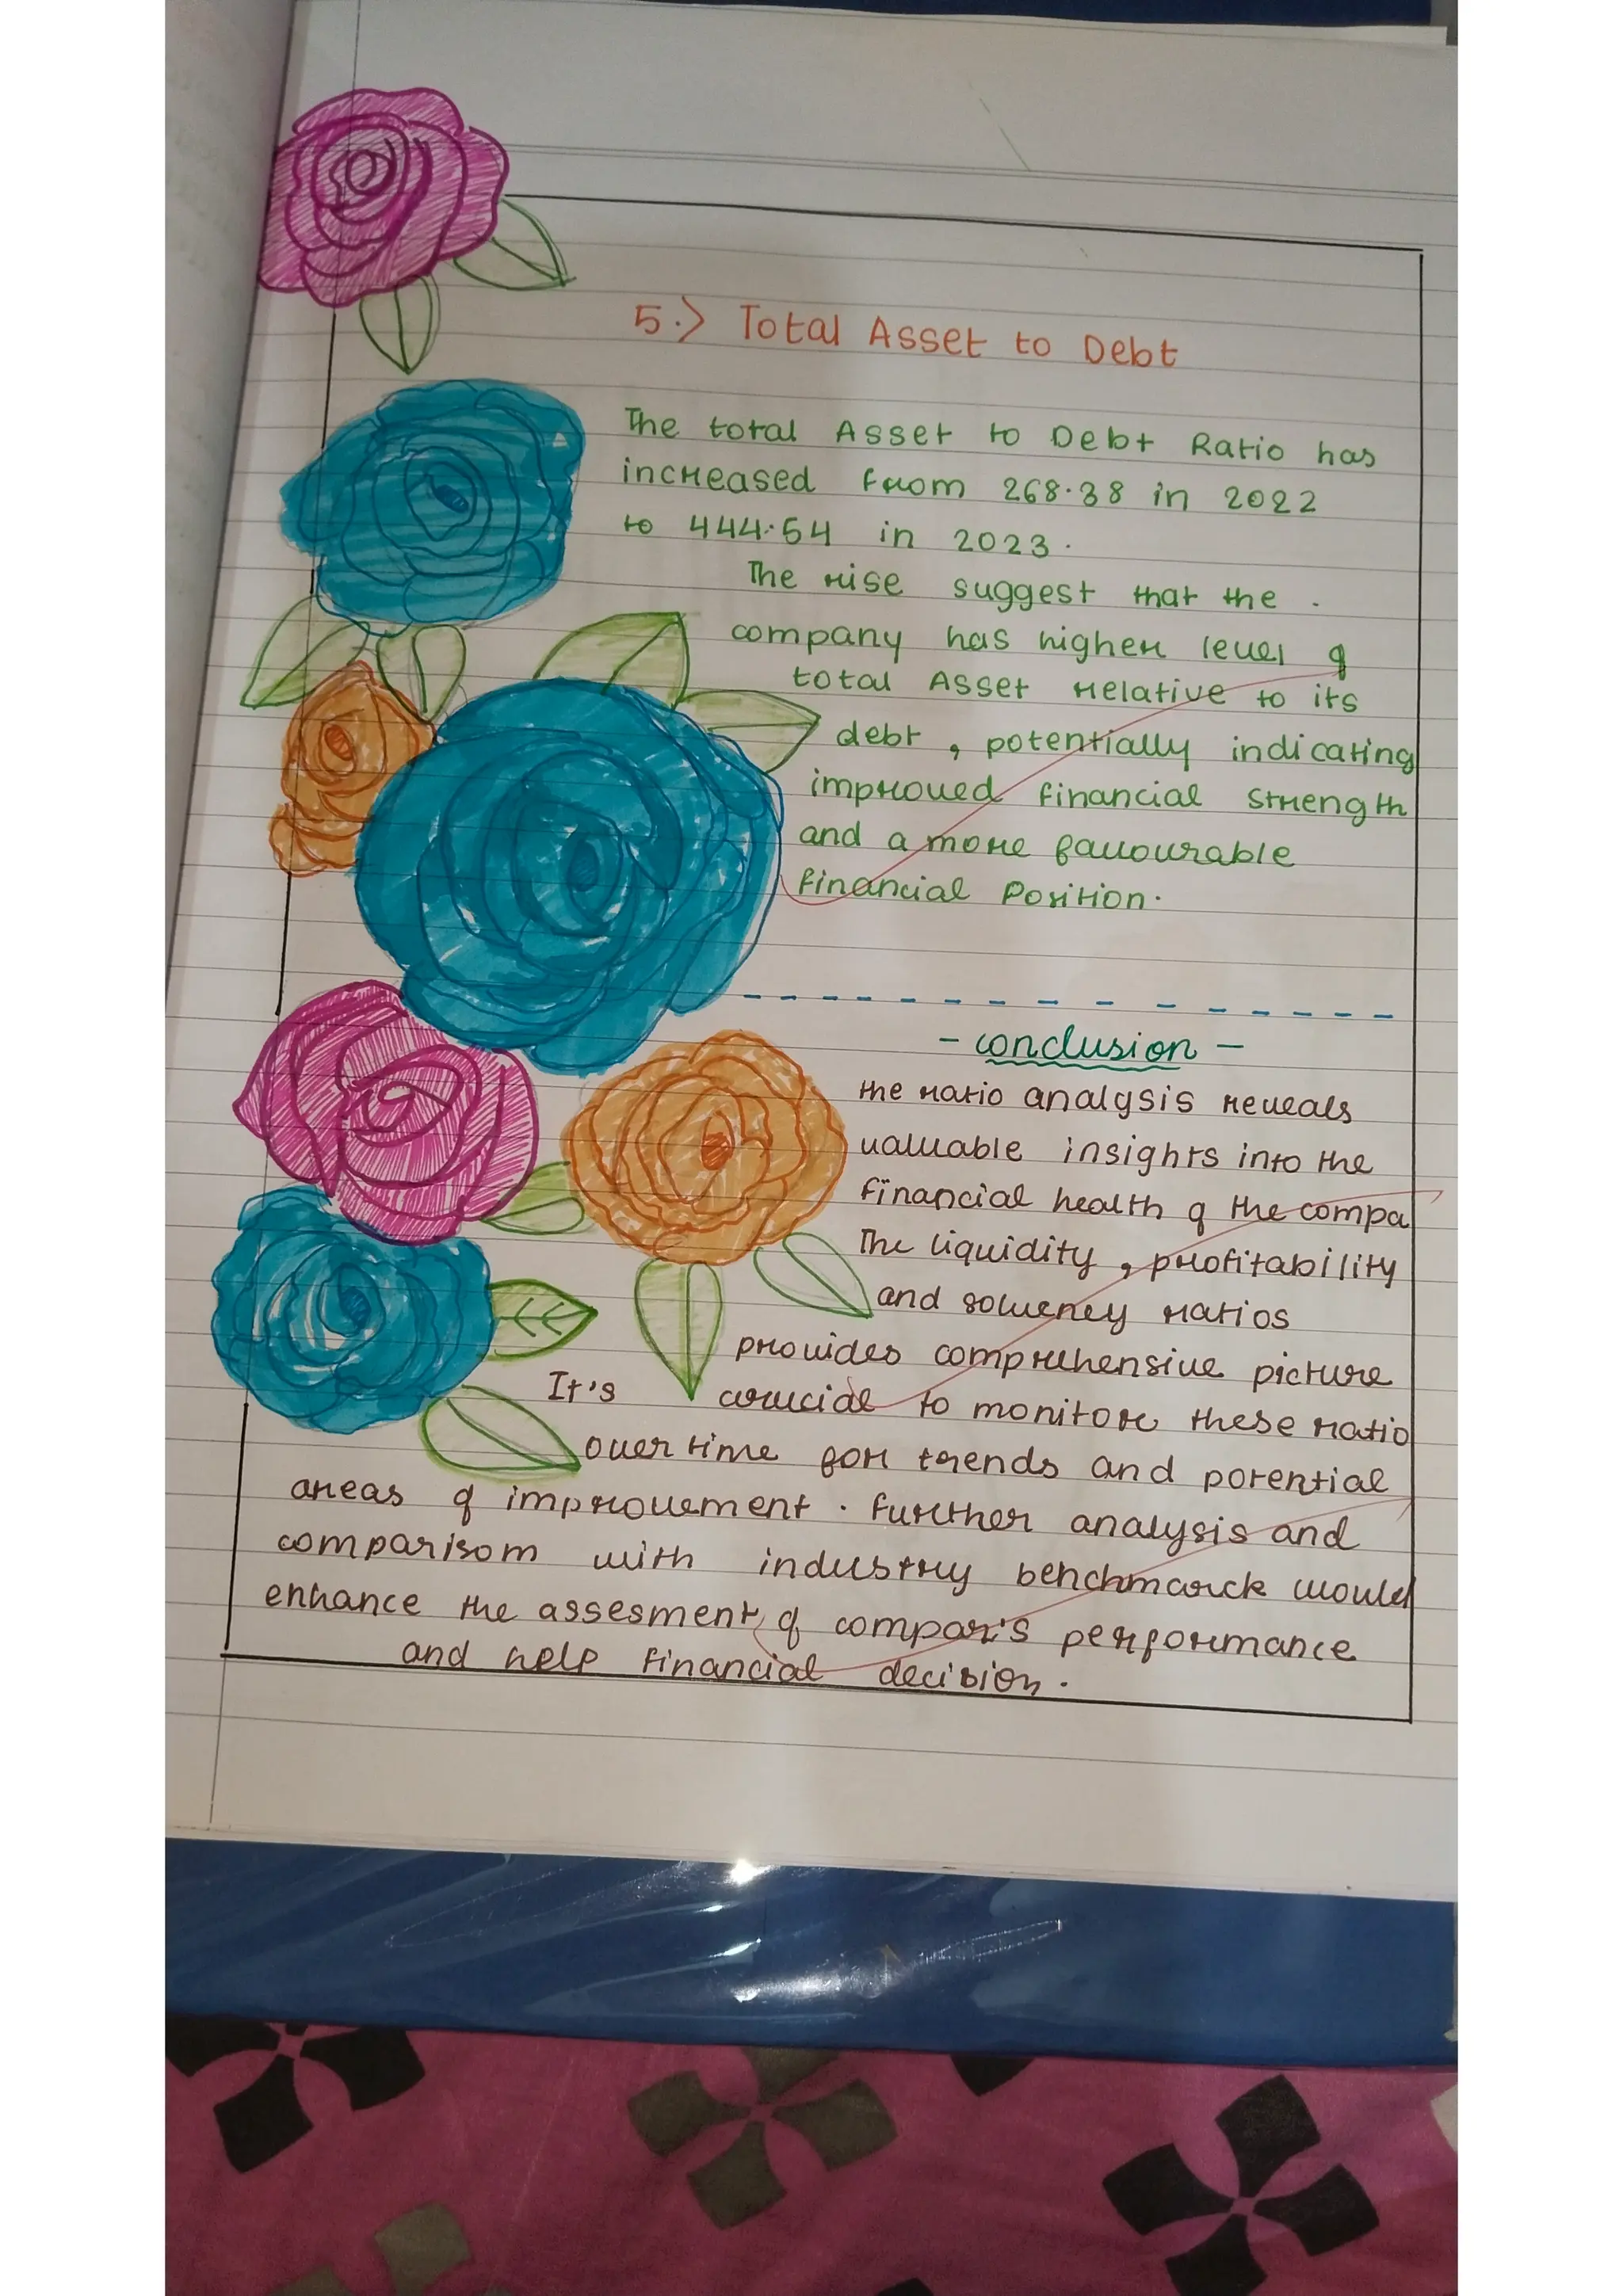 5.> Total Asset to Debt
The total Asset to Debt Ratio has
increased from 268.38 in 2022
to 444.54 in 2023.
The rise suggest that the .
company has higher level of
total Asset relative to its
debt , potentially indicating
improved financial strength
and a more favourable
financial Position.
- conclusion -
the ratio analysis reveals
valuable insights into the
financial health of the compa
The liquidity , profitability
and solvency ratios
provides comprehensive picture
It's crucial to monitor these ratio
over time for trends and potential
areas of improvement . further analysis and
comparisom with industry benchmarck would
enhance the assesment of compar's performance
and help financial decision .